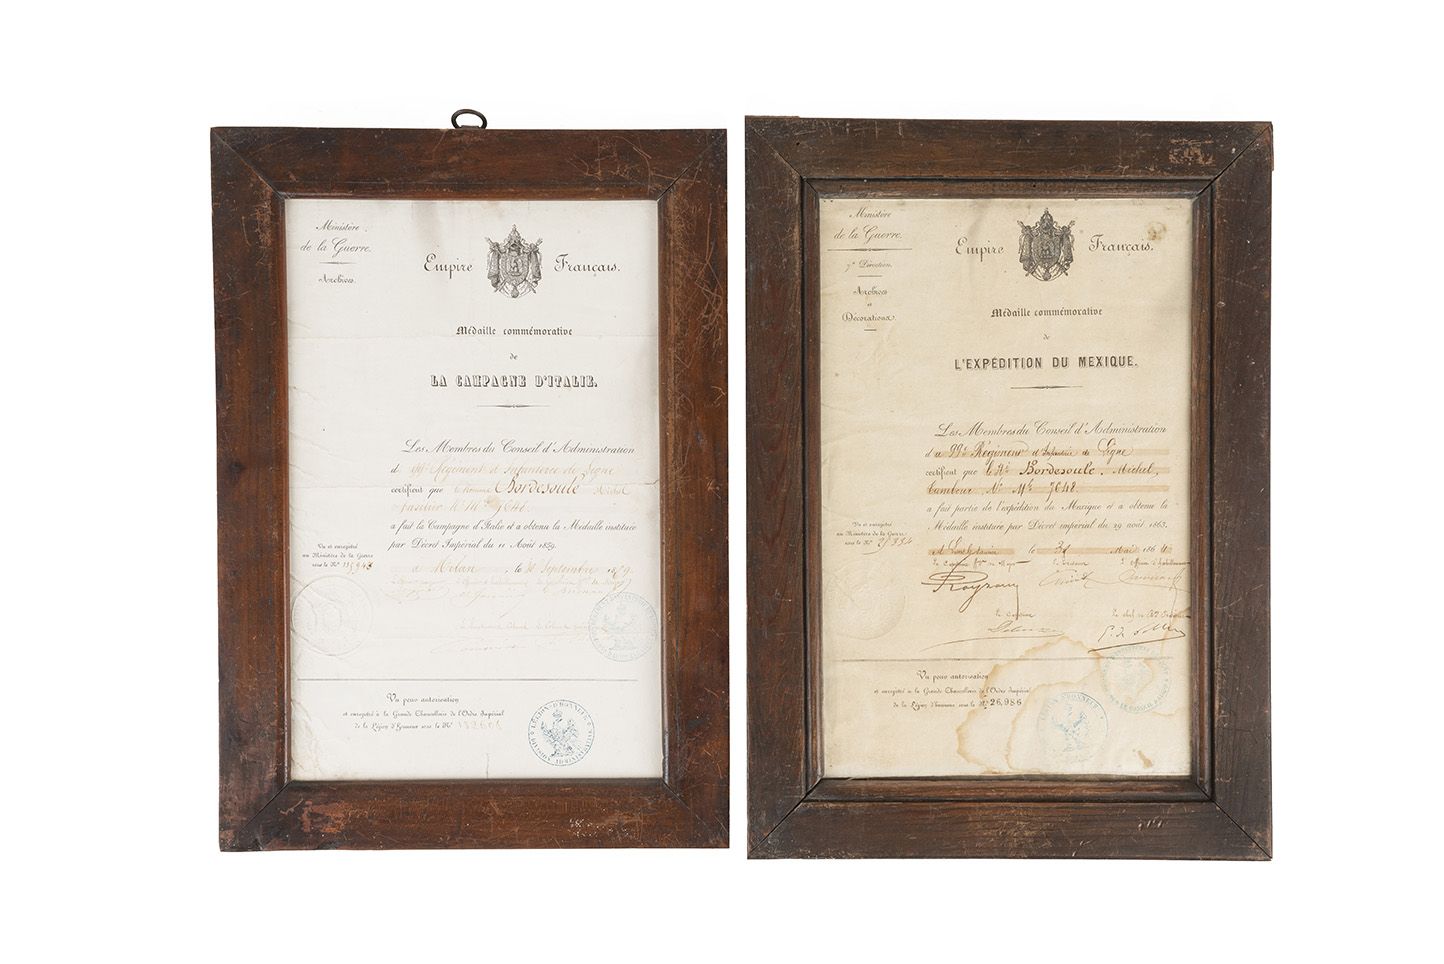 Ministère
de la Guerre.
Archives.
Empire Français.
Médaille commémorative
de
LA CAMPAGNE D'ITALIE.
Les Membres du Conseil d'Administration
d 99e Régiment d'Infanterie de Ligne
certifient que le nommé Bordesoule Michel
fusilier No Mle 7648
a fait la Campagne d'Italie et a obtenu la Médaille instituée
par Décret Impérial du 11 Août 1859.
Vu et enregistré
au Ministère de la Guerre
sous le No 115943
a Milan le 30 Septembre 1859.
Vu pour autorisation
et enregistré à la Grande Chancellerie de l'Ordre Impérial
de la Légion d'Honneur sous le No
LÉGION D'HONNEUR
DIVISION ADMINISTRATIVE
Ministère
de la Guerre.
7e Direction.
Archives
et
Décorations.
Empire Français.
Médaille commémorative
de
L'EXPÉDITION DU MEXIQUE.
Les Membres du Conseil d'Administration
d u 99e Régiment d'Infanterie de Ligne
certifient que le Sr Bordesoule, Michel,
tambour No Mle 7648
a fait partie de l'expédition du Mexique et a obtenu la
Médaille instituée par Décret impérial du 29 août 1863.
Vu et enregistré
au Ministère de la Guerre
sous le No
le 31 Mai 1864
Vu pour autorisation
et enregistré à la Grande Chancellerie de l'Ordre Impérial
de la Légion d'honneur sous le No 26,986